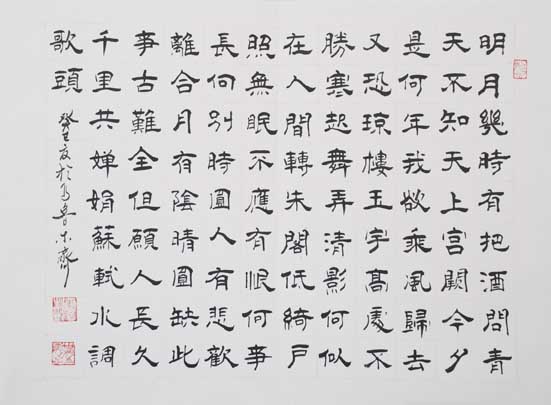 明月幾時有把酒問青
天不知天上宮闕今夕
是何年我欲乘風歸去
又恐瓊樓玉宇高處不
勝寒起舞弄清影何似
在人間轉朱閣低綺戶
照無眠不應有恨何事
長何別時圓人有悲歡
離合月有陰晴圓缺此
事古難全但願人長久
千里共嬋娟蘇軾水調
歌頭